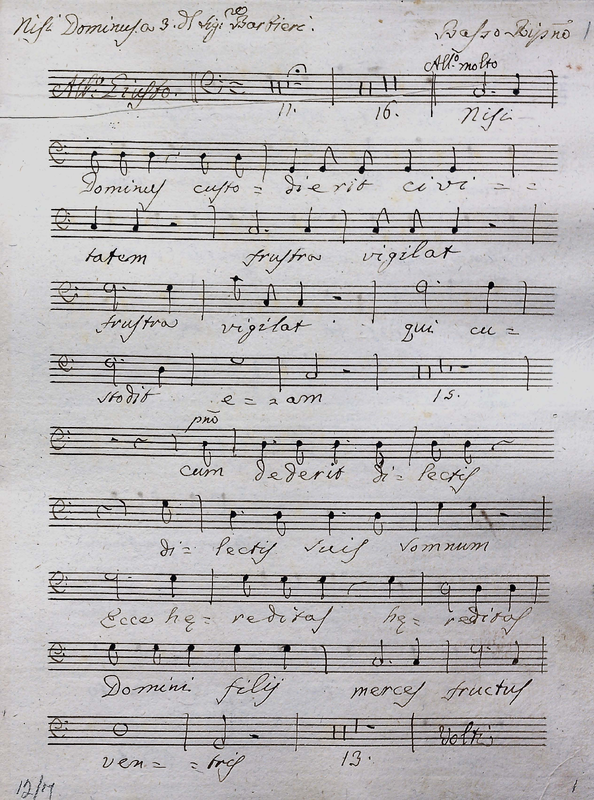 Nisi Dominus. a 3. Dl Sigre Barbieri.
Basso Ripno 1
Allo. Giusto.
Allo. molto
11. 16. Nisi
Dominus custo = dierit civi = =
tatem frustra vigilat
frustra vigilat qui cu =
stodit e = = am 15.
pno
cum dederit di = lectis
di = lectis suis somnum
Ecce hę = reditas hę = reditas
Domini filij merces fructus
ven = = tris 13. Volti
12/17 1